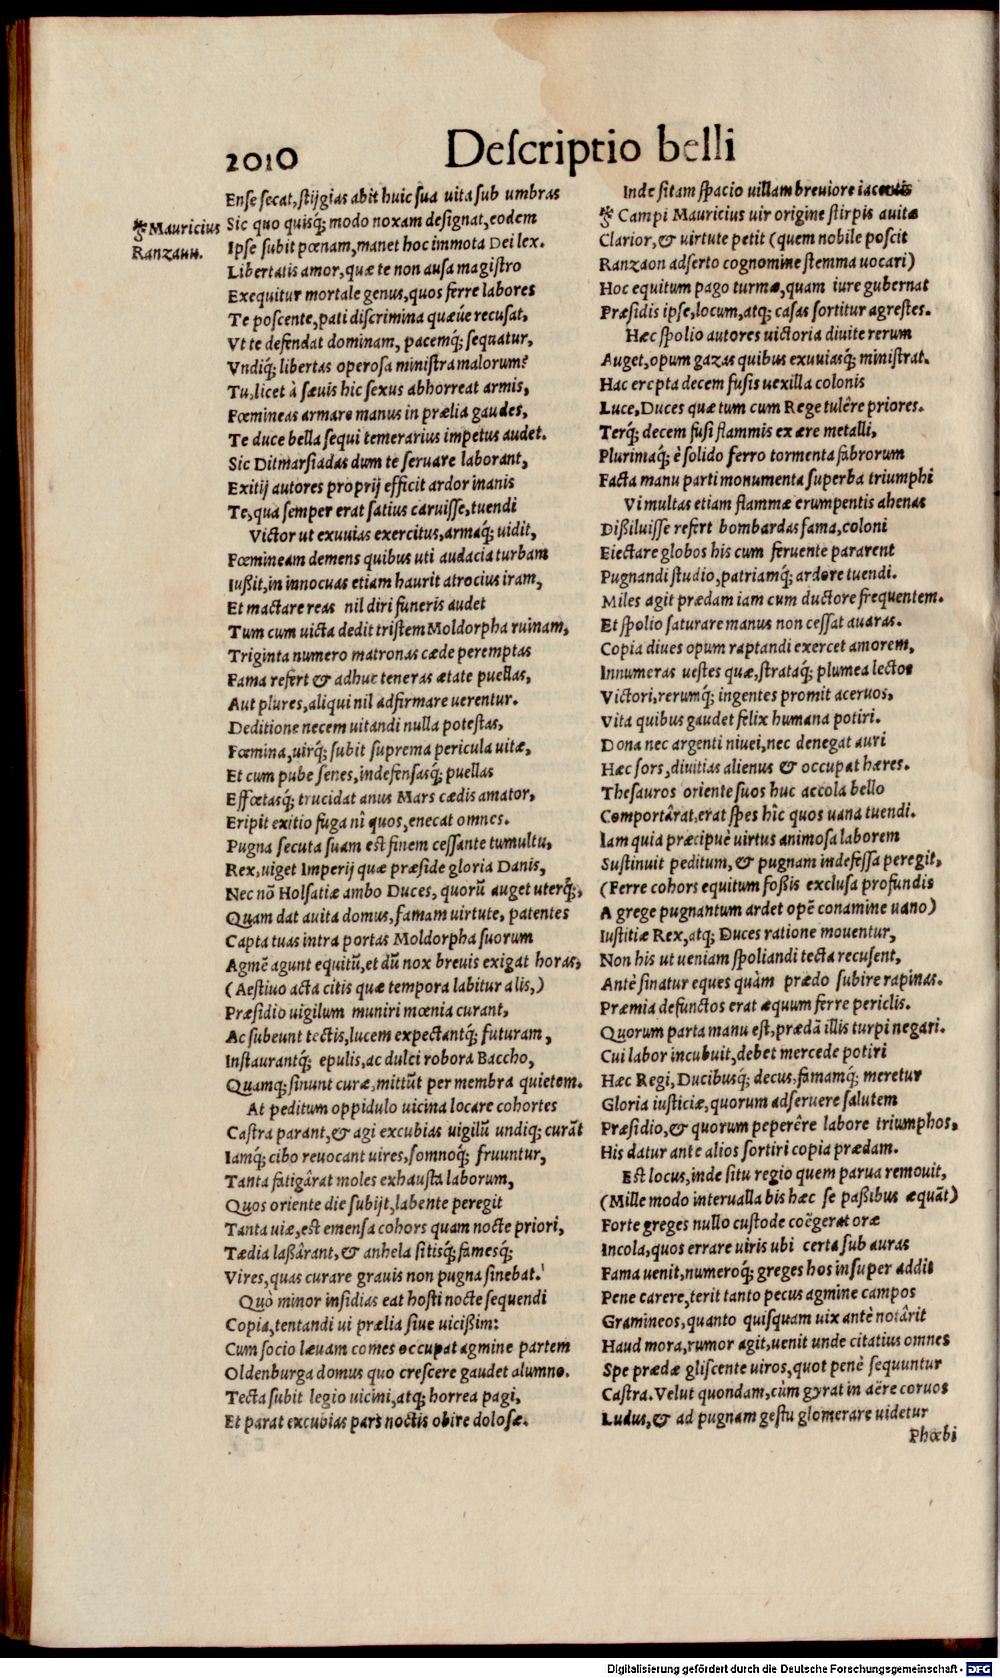 2010 Deſcriptio belli
Enſe ſecat, ſtijgias abit huic ſua uita ſub umbras
Sic quo quisq́; modo noxam deſignat, eodem
Ipſe ſubit pœnam, manet hoc immota Dei lex.
Libertatis amor, quæ te non auſa magiſtro
Exequitur mortale genus, quos ferre labores
Te poſcente, pati diſcrimina quæue recuſat,
Vt te defendat dominam, pacemq́; ſequatur,
Vndiq́; libertas operoſa miniſtra malorum?
Tu, licet à ſæuis hic ſexus abhorreat armis,
Fœmineas armare manus in prælia gaudes,
Te duce bella ſequi temerarius impetus audet.
Sic Ditmarſiadas dum te ſeruare laborant,
Exitij autores proprij efficit ardor inanis
Te, qua ſemper erat ſatius caruiſſe, tuendi
Victor ut exuuias exercitus, armaq́; uidit,
Fœmineam demens quibus uti audacia turbam
Iußit, in innocuas etiam haurit atrocius iram,
Et mactare reas nil diri funeris audet
Tum cum uicta dedit triſtem Moldorpha ruinam,
Triginta numero matronas cæde peremptas
Fama refert & adhuc teneras ætate puellas,
Aut plures, aliqui nil adfirmare uerentur.
Deditione necem uitandi nulla poteſtas,
Fœmina, uirq́; ſubit ſuprema pericula uitæ,
Et cum pube ſenes, indefenſasq́; puellas
Effœtasq́; trucidat anus Mars cædis amator,
Eripit exitio fuga nî quos, enecat omnes.
Pugna ſecuta ſuam eſt finem ceſſante tumultu,
Rex, uiget Imperij quæ præſide gloria Danis,
Nec nō Holſatiæ ambo Duces, quorū auget uterq́;,
Quam dat auita domus, famam uirtute, patentes
Capta tuas intra portas Moldorpha ſuorum
Agmē agunt equitū, et dū nox brevis exigat horas,
(Aeſtiuo acta citis quæ tempora labitur alis,)
Præſidio uigilum muniri mœnia curant,
Ac ſubeunt tectis, lucem expectantq́; futuram,
Inſtaurantq́; epulis, ac dulci robora Baccho,
Quamq; ſinunt curæ, mittūt per membra quietem.
At peditum oppidulo uicina locare cohortes
Caſtra parant, & agi excubias uigilū undiq; curāt
Iamq́; cibo reuocant uires, ſomnoq́; fruuntur,
Tanta fatigârat moles exhauſta laborum,
Quos oriente die ſubijt, labente peregit
Tanta uiæ, eſt emenſa cohors quam nocte priori,
Tædia laßârant, & anhela ſitisq́; famesq́;
Vires, quas curare grauis non pugna ſinebat.
Quò minor inſidias eat hoſti nocte ſequendi
Copia, tentandi ui prælia ſiue uicißim:
Cum ſocio læuam comes occupat agmine partem
Oldenburga domus quo creſcere gaudet alumno.
Tecta ſubit legio uicini, atq; horrea pagi,
Et parat excubias pars noctis obire doloſæ.
* Mauricius
Ranzauu.
Inde ſitam ſpacio uillam breuiore iacentis
* Campi Mauricius uir origine ſtirpis auitæ
Clarior, & uirtute petit (quem nobile poſcit
Ranzaon adſerto cognomine ſtemma uocari)
Hoc equitum pago turmæ, quam iure gubernat
Præſidis ipſe, locum, atq; caſas ſortitur agreſtes.
Hæc ſpolio autores uictoria diuite rerum
Auget, opum gazas quibus exuuiasq́; miniſtrat.
Hac erepta decem fuſis uexilla colonis
Luce, Duces quæ tum cum Rege tulêre priores.
Terq́; decem fuſi flammis ex ære metalli,
Plurimaq́; è ſolido ferro tormenta fabrorum
Facta manu parti monumenta ſuperba triumphi
Vi multas etiam flammæ erumpentis ahenas
Dißiluiſſe refert bombardas fama, coloni
Eiectare globos his cum feruente pararent
Pugnandi ſtudio, patriamq́; ardore tuendi.
Miles agit prædam iam cum ductore frequentem.
Et ſpolio ſaturare manus non ceſſat auaras.
Copia diues opum raptandi exercet amorem,
Innumeras ueſtes quæ, ſtrataq́; plumea lectos
Victori, rerumq́; ingentes promit aceruos,
Vita quibus gaudet felix humana potiri.
Dona nec argenti niuei, nec denegat auri
Hæc ſors, diuitias alienus & occupat hæres.
Theſauros oriente ſuos huc accola bello
Comportârat, erat ſpes hîc quos uana tuendi.
Iam quia præcipuè uirtus animoſa laborem
Suſtinuit peditum, & pugnam indefeſſa peregit,
(Ferre cohors equitum foßis excluſa profundis
A grege pugnantum ardet opē conamine uano)
Iuſtitiæ Rex, atq; Duces ratione mouentur,
Non his ut ueniam ſpoliandi tecta recuſent,
Antè ſinatur eques quàm prædo ſubire rapinas.
Præmia defunctos erat æquum ferre periclis.
Quorum parta manu eſt, prædā illis turpi negari.
Cui labor incubuit, debet mercede potiri
Hæc Regi, Ducibusq́; decus, famamq́; meretur
Gloria iuſticiæ, quorum adſeruere ſalutem
Præſidio, & quorum peperêre labore triumphos,
His datur ante alios ſortiri copia prædam.
Eſt locus, inde ſitu regio quem parua remouit,
(Mille modo interualla bis hæc ſe paßibus æquāt)
Forte greges nullo cuſtode coëgerat oræ
Incola, quos errare uiris ubi certa ſub auras
Fama uenit, numeroq́; greges hos inſuper addit
Pene carere, terit tanto pecus agmine campos
Gramineos, quanto quiſquam uix antè notârit
Haud mora, rumor agit, uenit unde citatius omnes
Spe prædæ gliſcente uiros, quot penè ſequuntur
Caſtra. Velut quondam, cùm gyrat in aëre coruos
Ludus, & ad pugnam geſtu glomerare uidetur
Phœbi
Digitalisierung gefördert durch die Deutsche Forschungsgemeinschaft - DFG